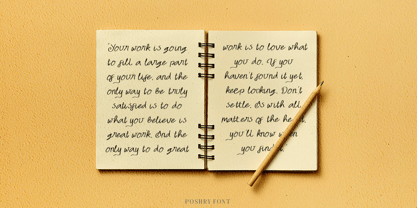 "Your work is going
to fill a large part
of your life, and the
only way to be truly
satisfied is to do
what you believe is
great work. And the
only way to do great
work is to love what
you do. If you
haven't found it yet,
keep looking. Don't
settle. As with all
matters of the heart,
you'll know when
you find
POSHRI FONT